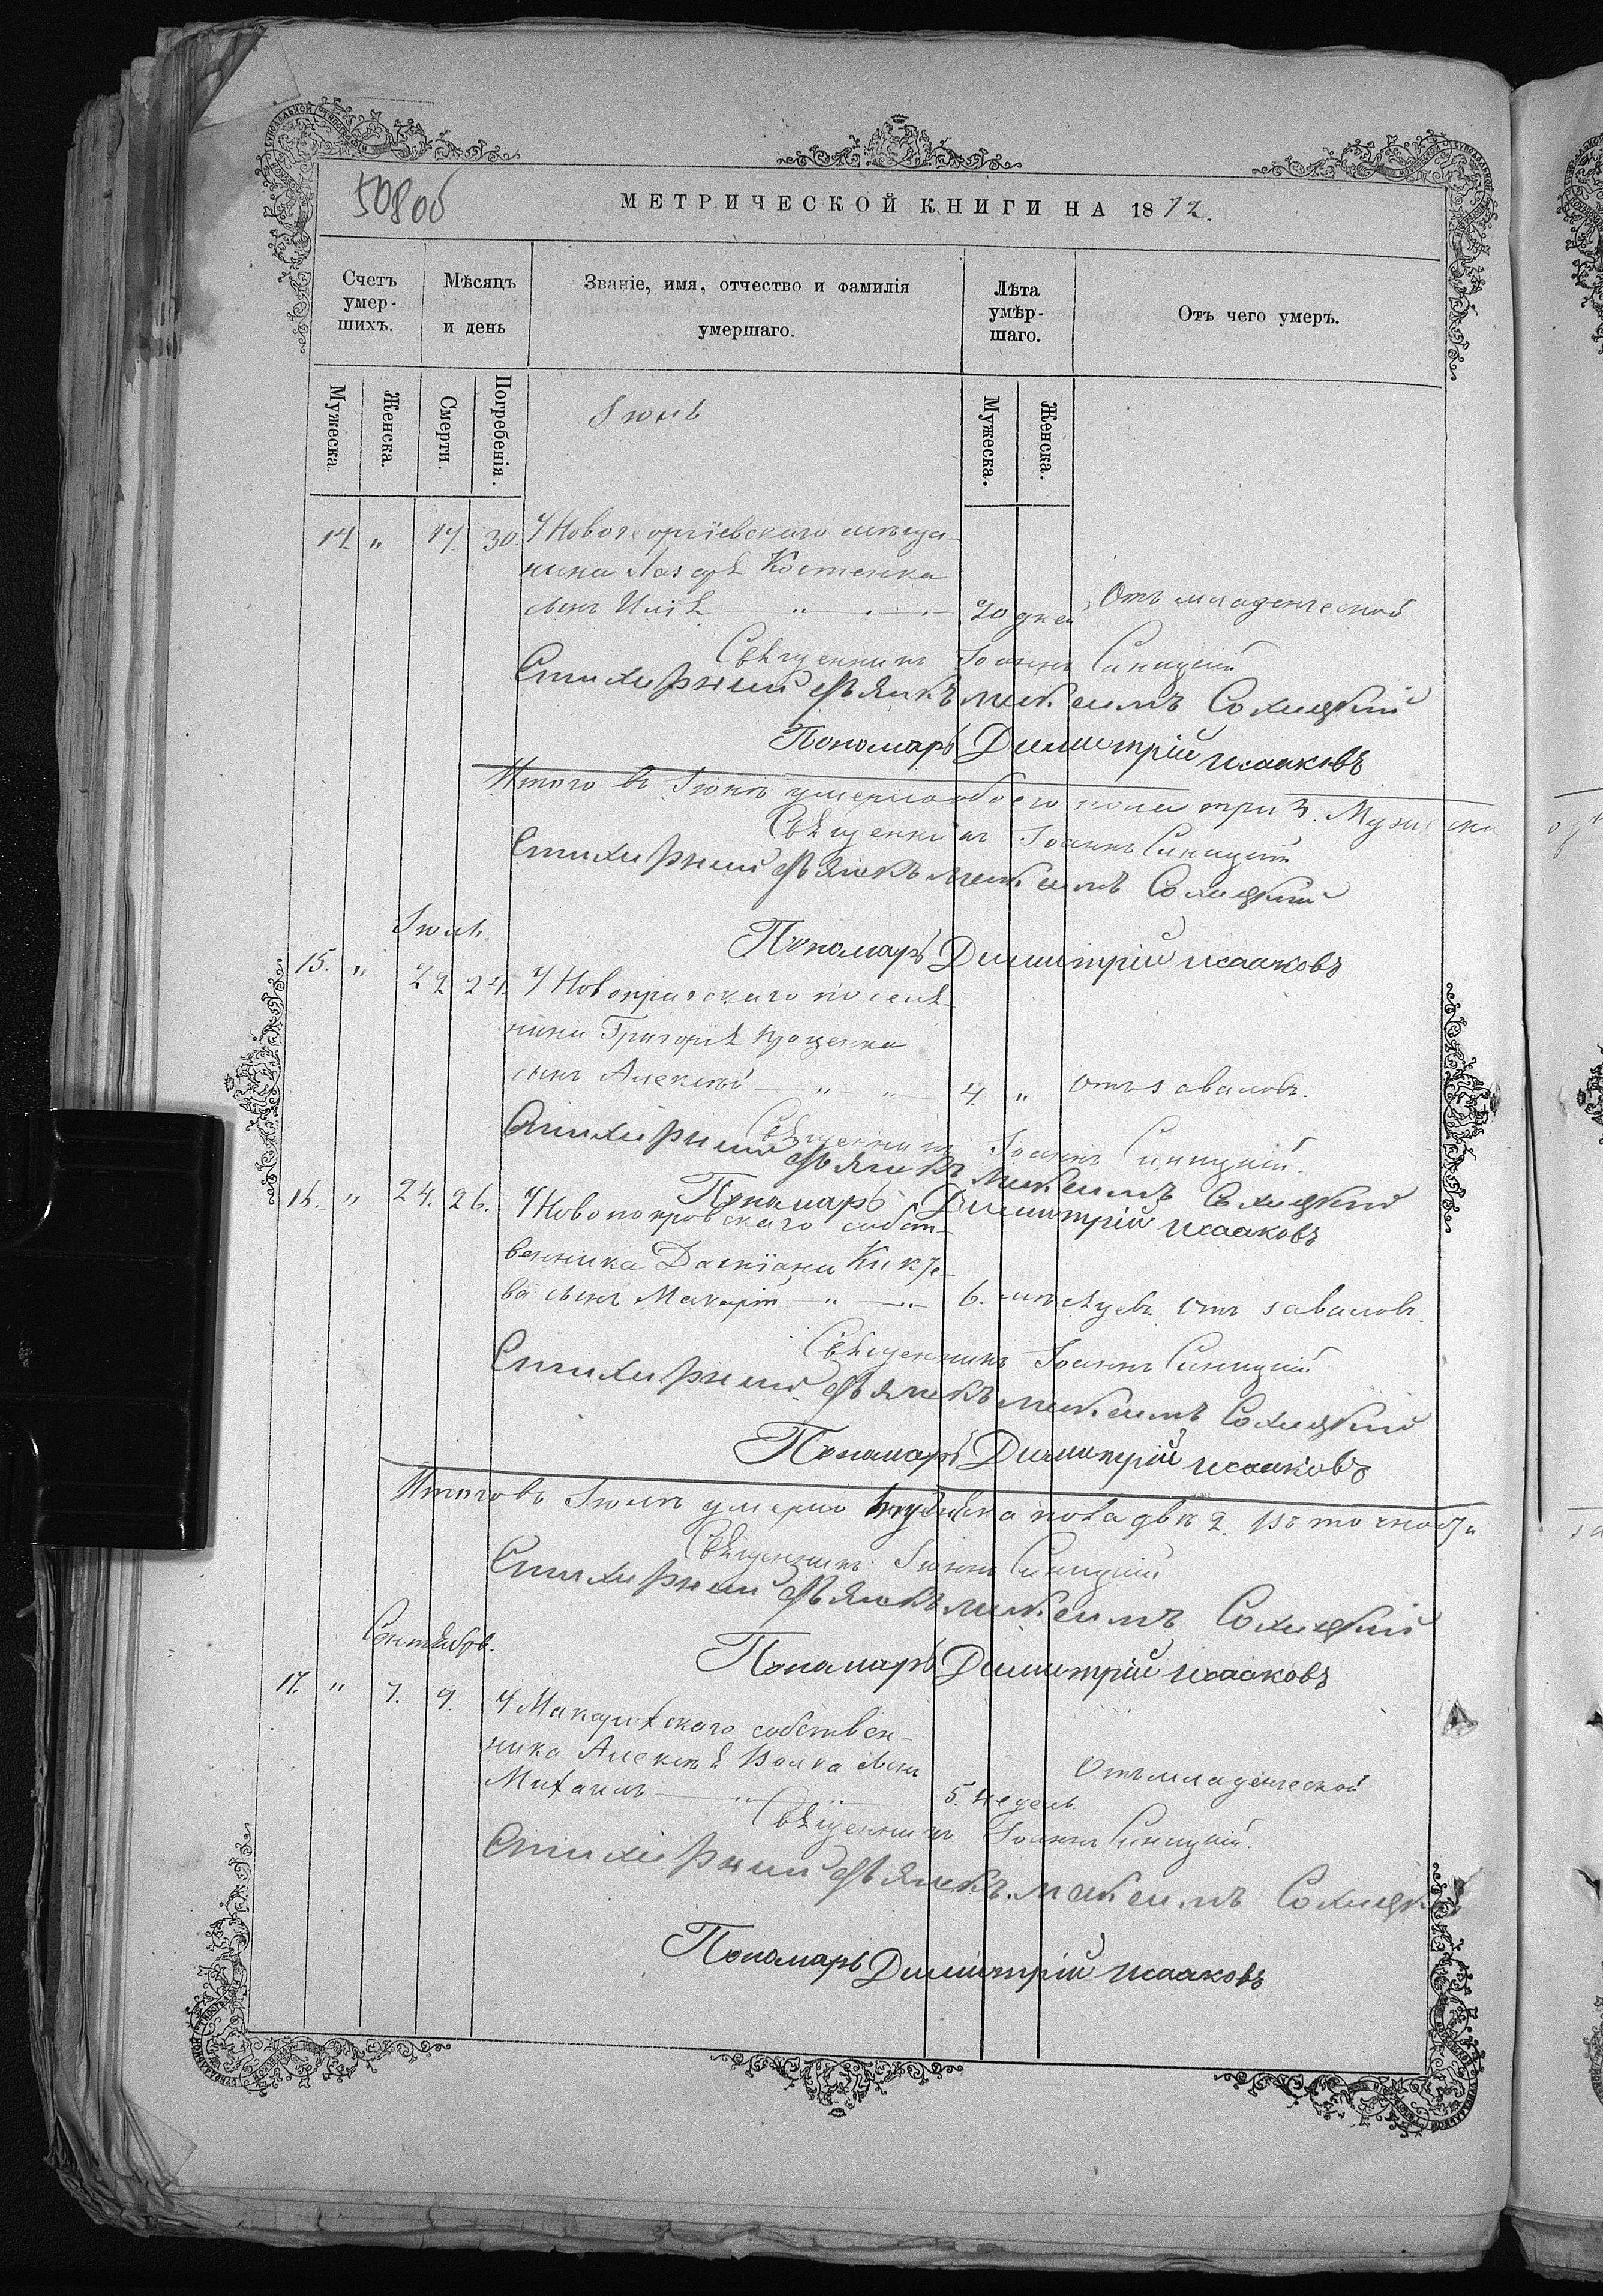 508об
МЕТРИЧЕСКОЙ КНИГИ НА 1872.
Счетъ умер- шихъ.
Мѣсяцъ и день
Званіе, имя, отчество и фамилія умершаго.
Лѣта умѣр- шаго.
Отъ чего умеръ.
Мужеска.
Женска.
Смерти.
Погребенія.
Мужеска.
Женска.
Іюнь
14. " 30. У Новогеоргіевскаго мѣща-
нина Лазаря Костенка
сынъ Илія 20 дней Отъ младенческой
Священникъ Іоаннъ Синицкій
Стихирный дьячекъ Сохицкій
Пономарь Димитрій Исааковъ
Итого въ Іюнѣ умерло обоего пола три 3. Мужеска
Священникъ Іоаннъ Синицкій
Стихирный дьячекъ Сохицкій
Іюль.
Пономарь Димитрій Исааковъ
15. " 22 24. У Новопражскаго поселя-
нина Григорія Проценка
сынъ Алексѣй 4 " отъ заваловъ.
Священникъ Іоаннъ Синицкій.
Стихирный дьячекъ Сохицкій
Пономарь Димитрій Исааковъ
16. " 24. 26. У Новопокровскаго собст-
венника Даміана
ва сынъ Макарій 6. мѣсяцевъ. отъ заваловъ.
Священникъ Іоаннъ Синицкій
Стихирный дьячекъ Сохицкій
Пономарь Димитрій Исааковъ
Итого въ Іюлѣ умерло мужеска пола два 2. Въ точности
Священникъ Іоаннъ Синицкій
Стихирный дьячекъ Сохицкій
Сентябрь.
Пономарь Димитрій Исааковъ
17. " 7. 9. У Макарихскаго собствен-
ника Алексѣя Волка сынъ
Михаилъ 5. недель. Отъ младенческой
Священникъ Іоаннъ Синицкій.
Стихирный дьячекъ Сохицкій
Пономарь Димитрій Исааковъ